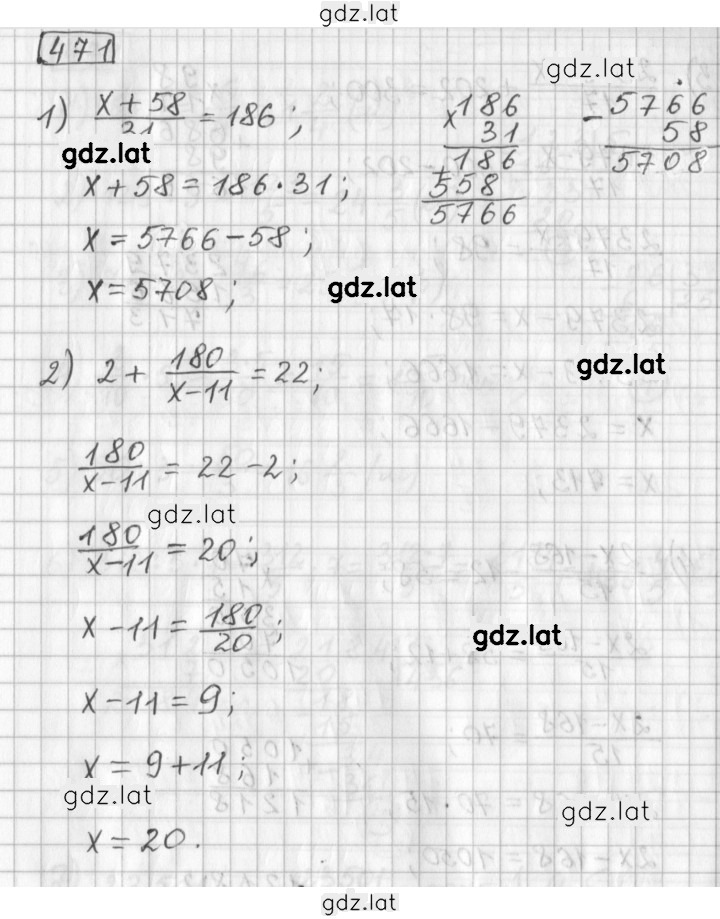 gdz.lat
471
gdz.lat
1) x + 58 / 21 = 186;
gdz.lat
x + 58 = 186 · 31;
x = 5766 - 58;
x = 5708;
× 186
31
+ 186
558
5766
- 5766
58
5708
gdz.lat
gdz.lat
2) 2 + 180 / x - 11 = 22;
180 / x - 11 = 22 - 2;
gdz.lat
180 / x - 11 = 20;
x - 11 = 180 / 20;
gdz.lat
x - 11 = 9;
x = 9 + 11;
gdz.lat
gdz.lat
x = 20.
gdz.lat